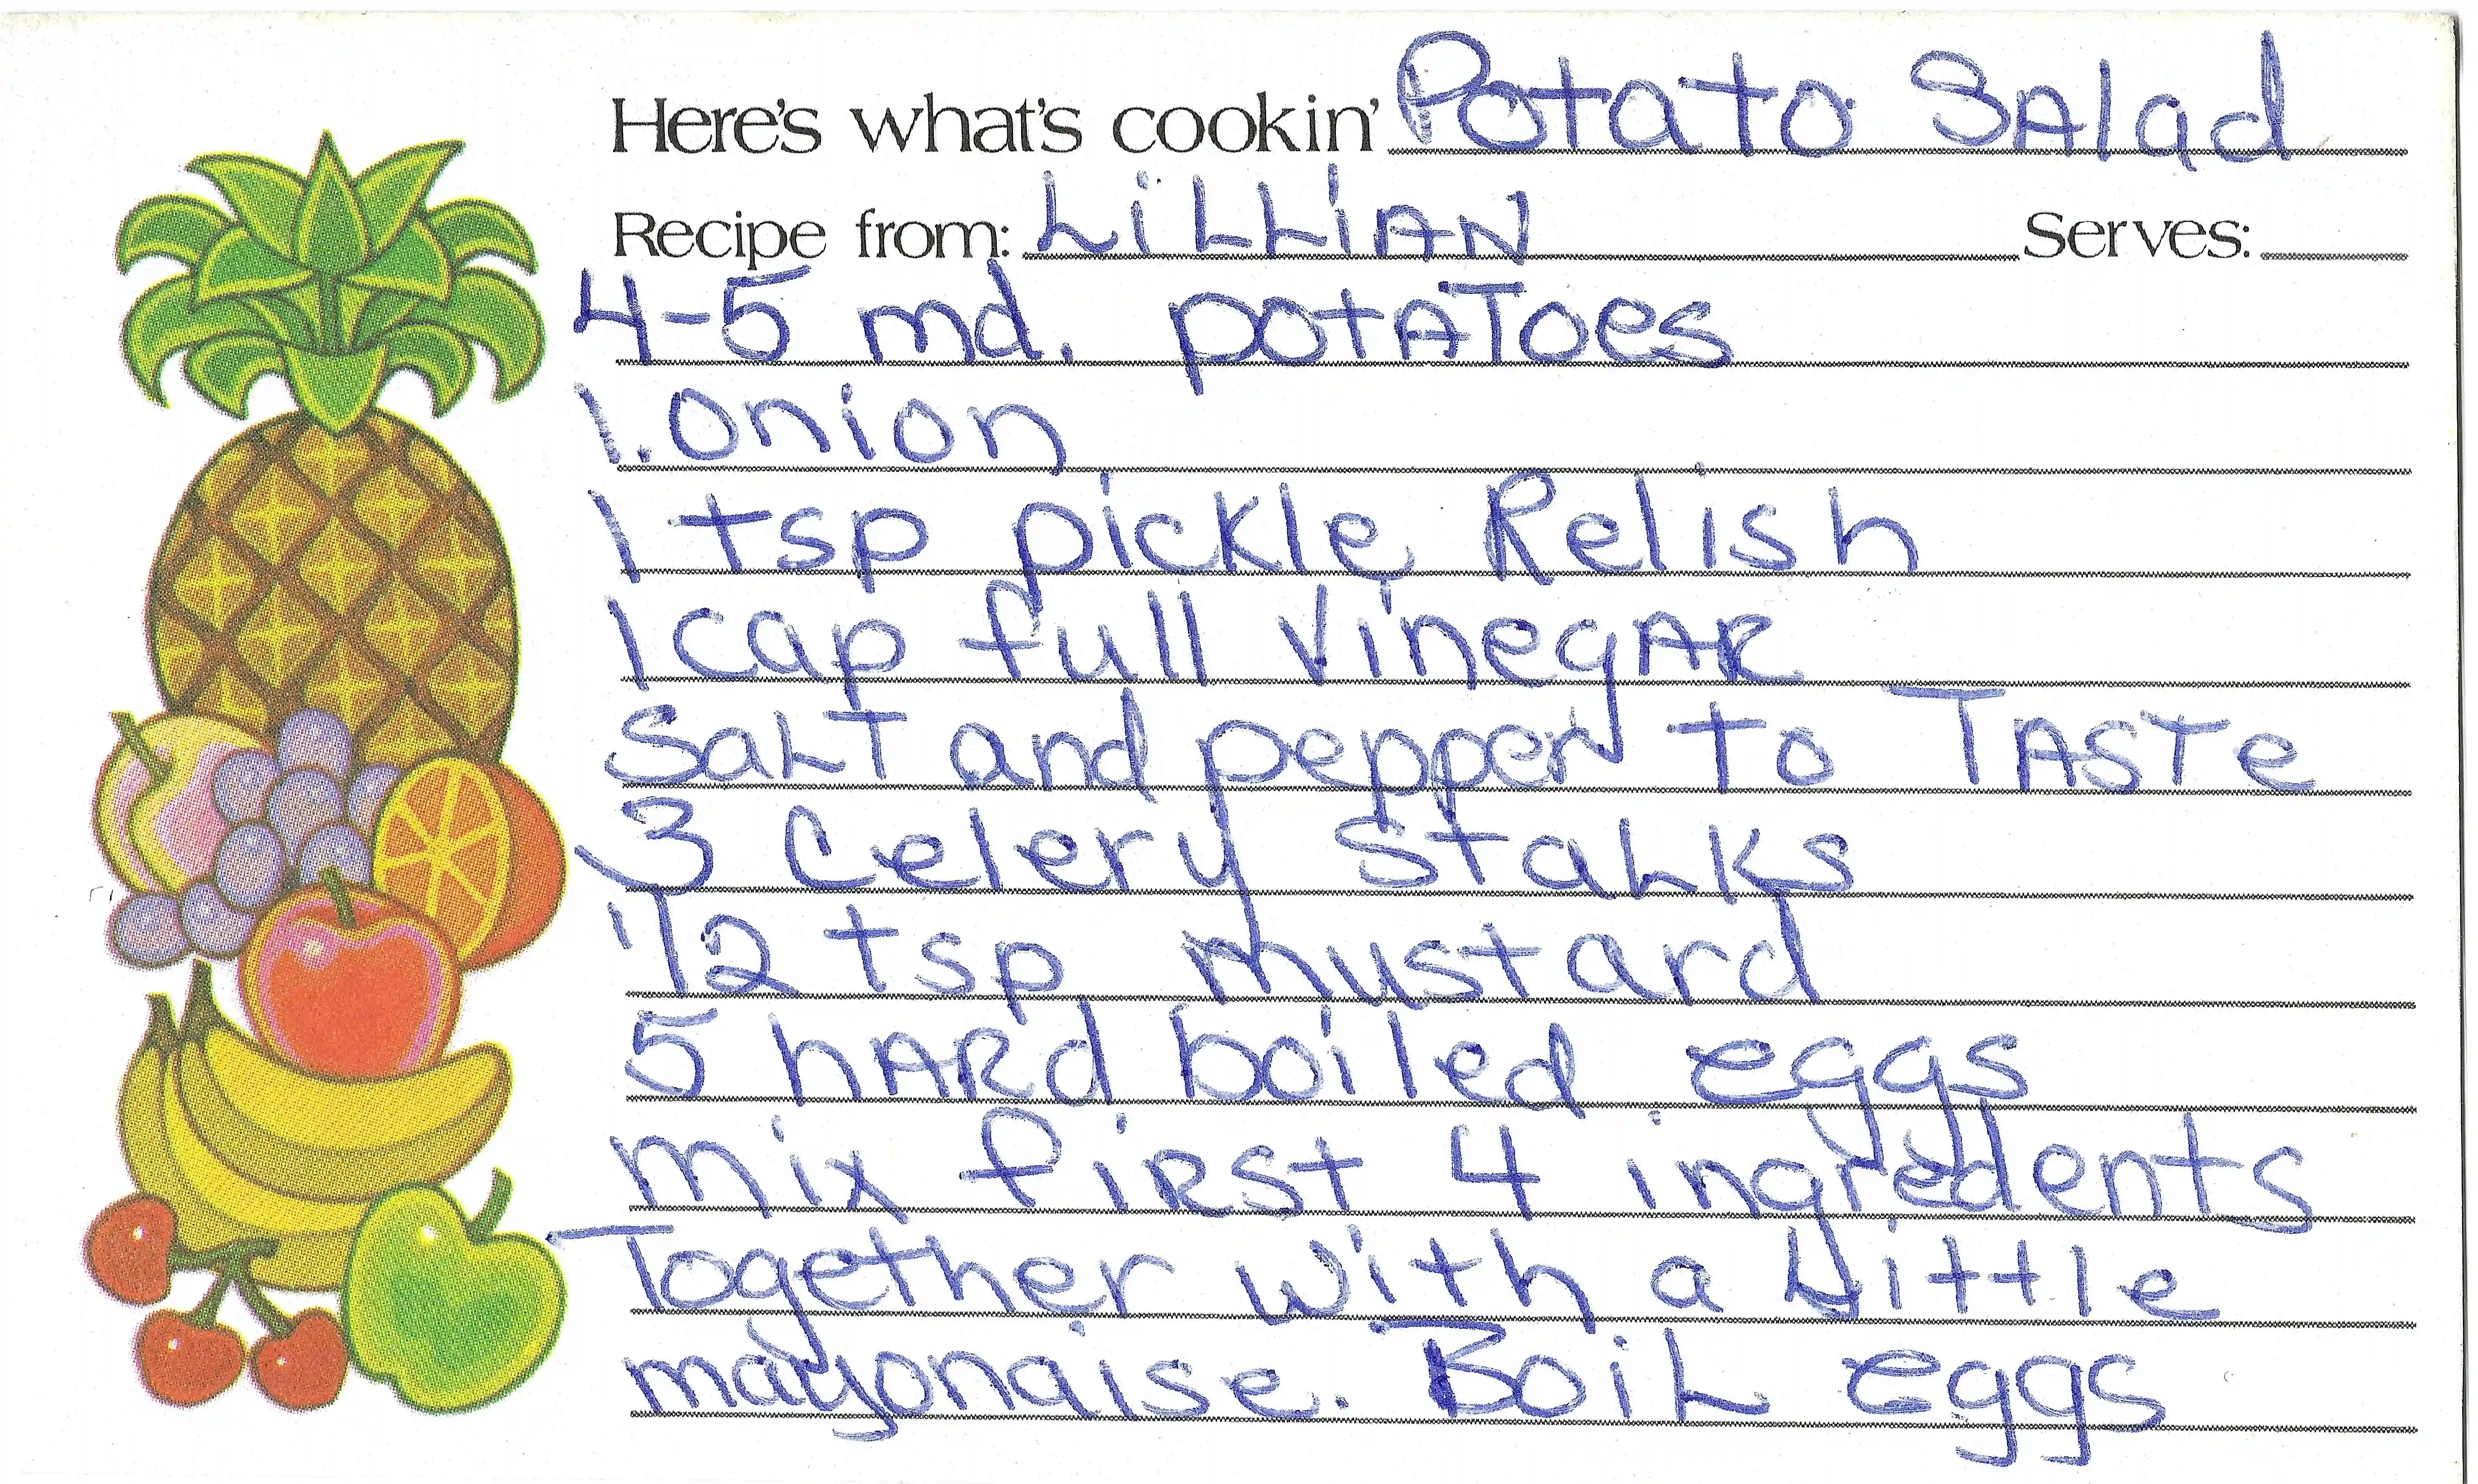 Here's what's cookin' Potato SAlad
Recipe from: LiLLiAN Serves:
4-5 md. potAToes
1. Onion
1 tsp pickle Relish
1 cap full VinegAR
SaLT and pepper to TASTe
3 Celery StaLKs
1/2 tsp mustard
5 hARd boiled eggs
mix fiRst 4 ingredents
Together with a Little
mayonaise. BoiL eggs